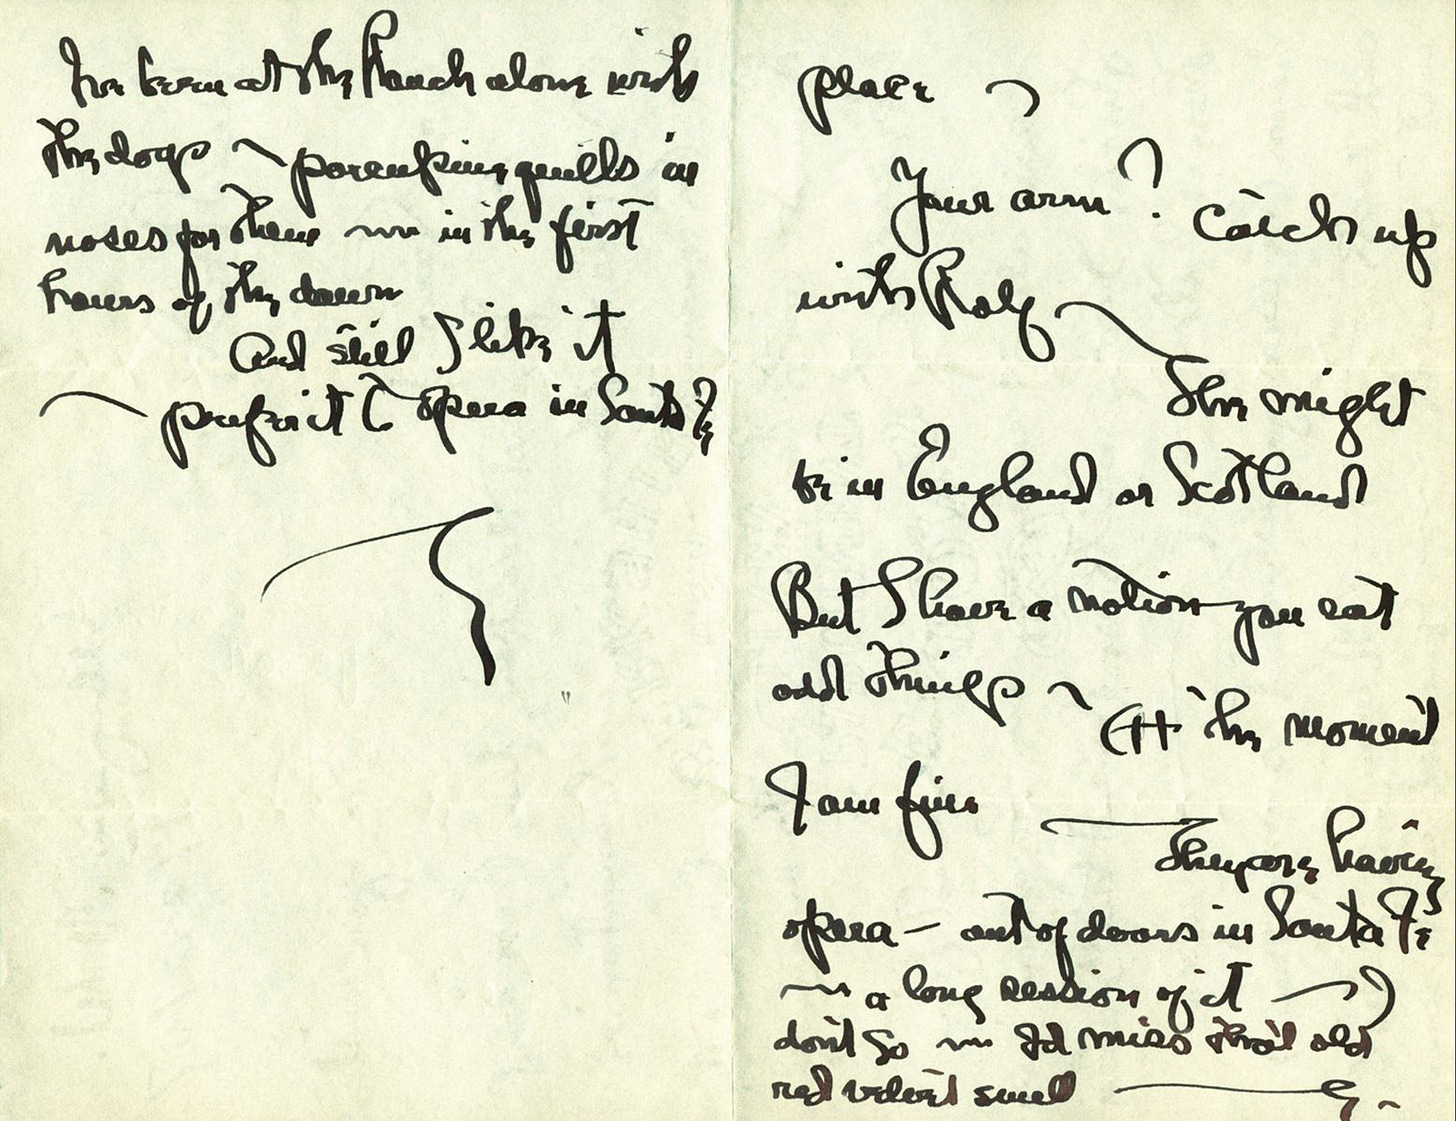 I've been at the Ranch alone with
the dogs ~ porcupine quills in
noses for them ~ in the first
hours of the dawn
And still I like it
~ prefer it to opera in Santa Fe
place ~
Your arm? Catch up
with
She might
be in England or Scotland
But I have a notion you eat
odd things ~ At the moment
I am fine
They are having
opera — out of doors in Santa Fe
~ a long session of it ~ I
don't go ~ I'd miss that old
red velvet smell —